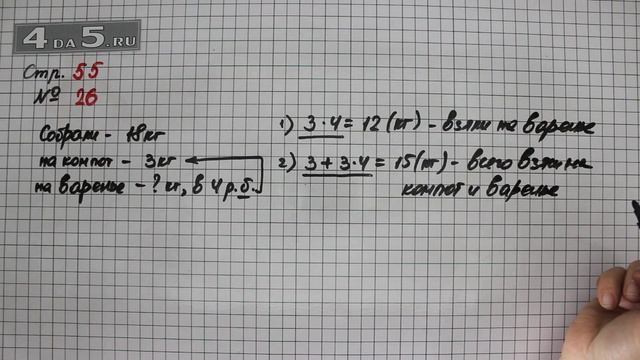 4DA5.RU
Стр. 55
№ 26
Собрали - 18 кг
на компот - 3 кг
на варенье - ? кг, в 4 р. б.
1) 3 · 4 = 12 (кг) - взяли на варенье
2) 3 + 3 · 4 = 15 (кг) - всего взяли на
компот и варенье